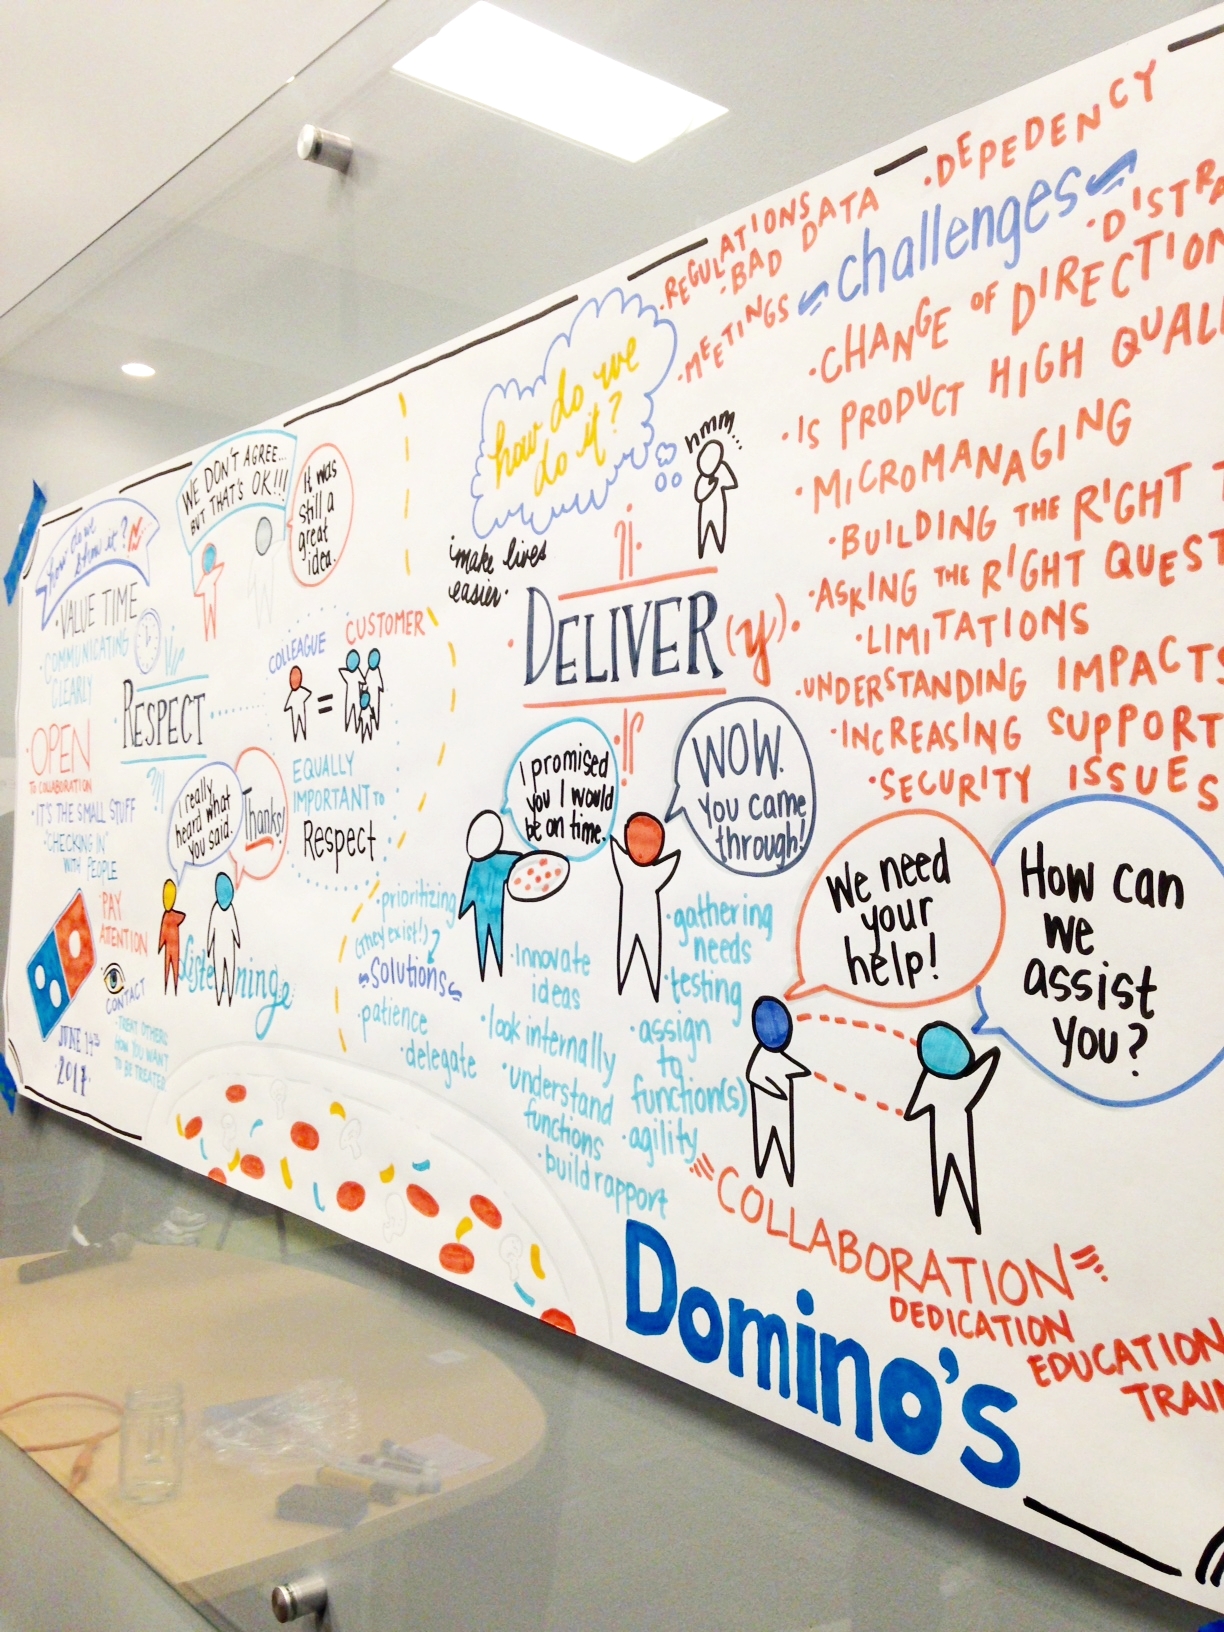 how do we
show it?
VALUE TIME
COMMUNICATING
CLEARLY
RESPECT
OPEN
TO COLLABORATION
IT'S THE SMALL STUFF
"CHECKING IN"
WITH PEOPLE
PAY
ATTENTION
CONTACT
TREAT OTHERS
HOW YOU WANT
TO BE TREATED
JUNE 14TH
2017
WE DON'T AGREE...
BUT THAT'S OK!!!
It was
still a
great
idea.
COLLEAGUE
=
CUSTOMER
EQUALLY
IMPORTANT TO
Respect
I really
heard what
you said.
Thanks!
how do we
do it?
hmm...
make lives
easier.
DELIVER(y)
I promised
you I would
be on time.
WOW.
You came
through!
prioritizing
(they exist!)
Solutions
patience
delegate
innovate
ideas
look internally
understand
functions
build rapport
gathering
needs
testing
assign
to
function(s)
agility
REGULATIONS
BAD DATA
MEETINGS
DEPEDENCY
challenges
CHANGE OF DIRECTION
IS PRODUCT HIGH
MICROMANAGING
BUILDING THE RIGHT
ASKING THE RIGHT
LIMITATIONS
UNDERSTANDING IMPACTS
INCREASING SUPPORT
SECURITY ISSUES
We need
your
help!
How can
we
assist
you?
COLLABORATION
DEDICATION
EDUCATION
Domino's